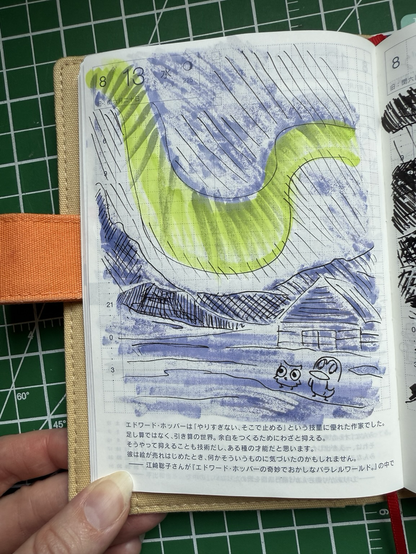 8 13 水
9
21
0
3
エドワード・ホッパーは「やりすぎない、そこで止める」という技量に優れた作家でした。
足し算ではなく、引き算の世界。余白をつくるためにわざと抑える。
そうやって抑えることも技術だし、ある種の才能だと思います。
彼は絵が売れはじめたとき、何かそういうものに気づいたのかもしれません。
―― 江﨑聡子さんが『エドワード・ホッパーの奇妙でおかしなパラレルワールド。』の中で
8
60°
45°